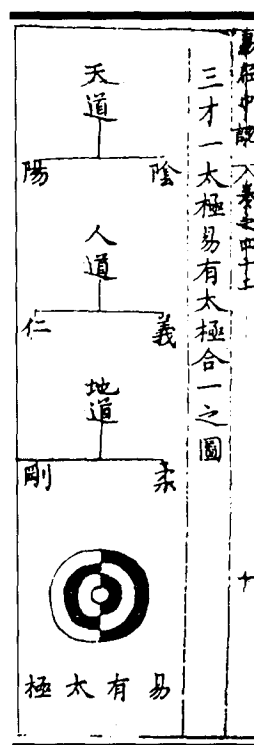 三才一太極易有太極合一之圖
天道
陰
陽
人道
義
仁
地道
柔
剛
易有太極